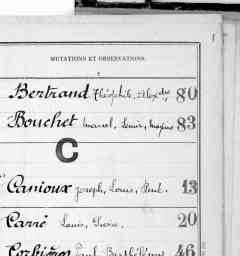 MUTATIONS ET OBSERVATIONS.
Bertrand Théophile, Alexdre 80
Bouchet Marcel, Louis, 83
C
Canioux Joseph, Louis, Paul. 13
Carré Louis, 20
Paul Barthélémy 46